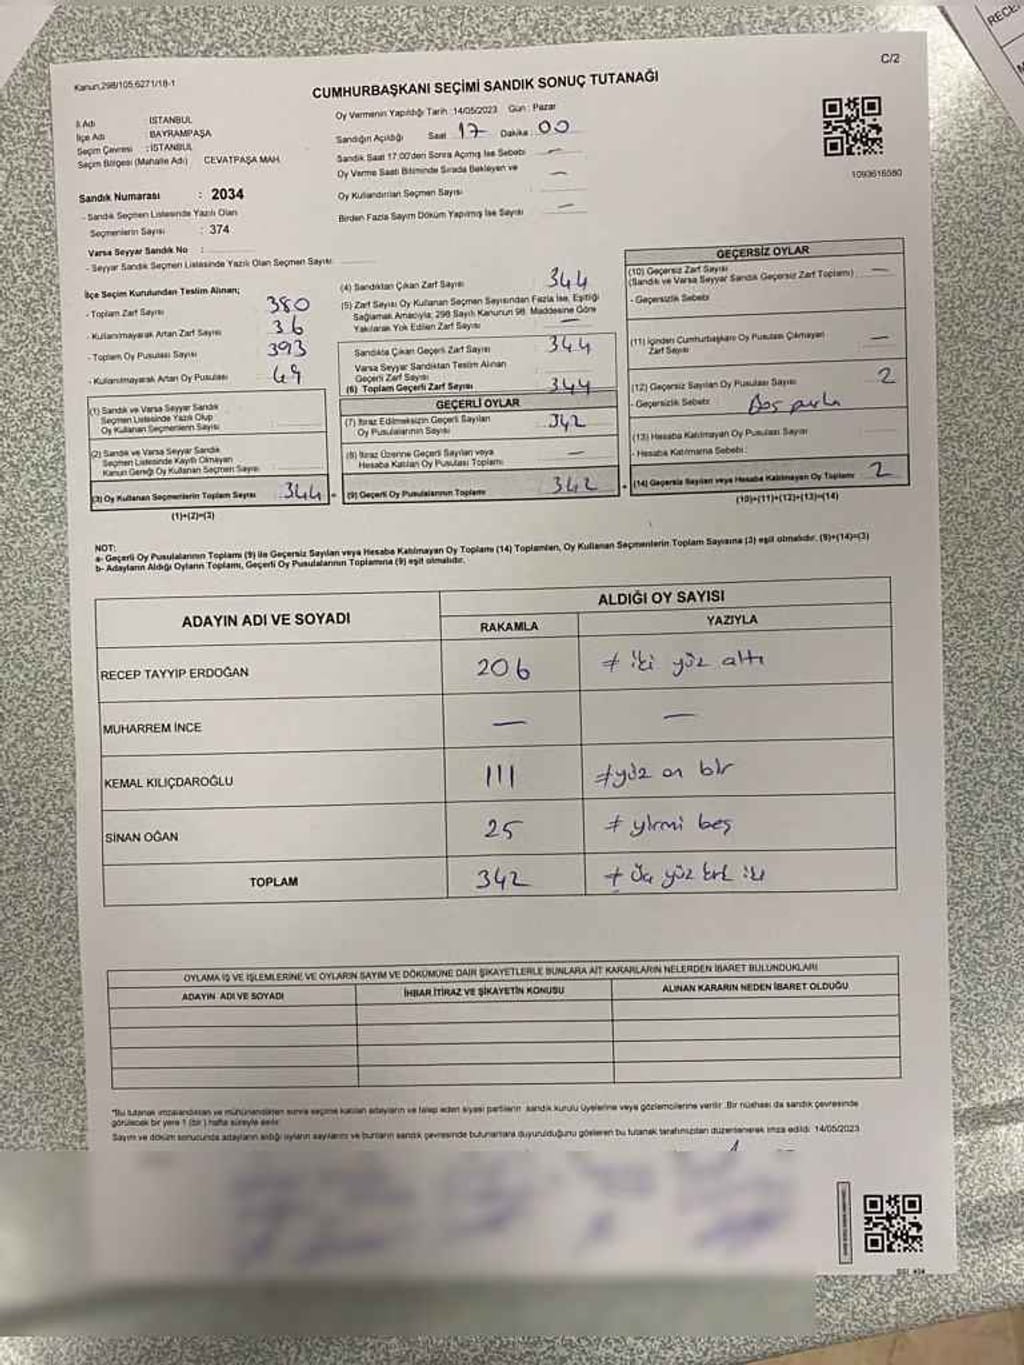 RECEP
C/2
Kanun,298/105,6271/18-1
CUMHURBAŞKANI SEÇİMİ SANDIK SONUÇ TUTANAĞI
İl Adı : İSTANBUL
İlçe Adı : BAYRAMPAŞA
Seçim Çevresi : İSTANBUL
Seçim Bölgesi (Mahalle Adı) CEVATPAŞA MAH.
Sandık Numarası : 2034
- Sandık Seçmen Listesinde Yazılı Olan
Seçmenlerin Sayısı : 374
Varsa Seyyar Sandık No :
- Seyyar Sandık Seçmen Listesinde Yazılı Olan Seçmen Sayısı:
Oy Vermenin Yapıldığı Tarih :14/05/2023 Gün : Pazar
Sandığın Açıldığı Saat 17 Dakika : 00
Sandık Saat 17:00'den Sonra Açmış İse Sebebi —
Oy Verme Saati Bitiminde Sırada Bekleyen ve
Oy Kullandırılan Seçmen Sayısı —
Birden Fazla Sayım Döküm Yapılmış İse Sayısı —
1093616580
İlçe Seçim Kurulundan Teslim Alınan;
- Toplam Zarf Sayısı 380
- Kullanılmayarak Artan Zarf Sayısı 36
- Toplam Oy Pusulası Sayısı 393
- Kullanılmayarak Artan Oy Pusulası 49
(1) Sandık ve Varsa Seyyar Sandık
Seçmen Listesinde Yazılı Olup
Oy Kullanan Seçmenlerin Sayısı
(2) Sandık ve Varsa Seyyar Sandık
Seçmen Listesinde Kayıtlı Olmayan
Kanun Gereği Oy Kullanan Seçmen Sayısı
(3) Oy Kullanan Seçmenlerin Toplam Sayısı 344 =
(1)+(2)=(3)
(4) Sandıktan Çıkan Zarf Sayısı 344
(5) Zarf Sayısı Oy Kullanan Seçmen Sayısından Fazla İse, Eşitliği
Sağlamak Amacıyla; 298 Sayılı Kanunun 98. Maddesine Göre
Yakılarak Yok Edilen Zarf Sayısı —
Sandıkta Çıkan Geçerli Zarf Sayısı 344
Varsa Seyyar Sandıktan Teslim Alınan
Geçerli Zarf Sayısı
(6) Toplam Geçerli Zarf Sayısı 344
GEÇERLİ OYLAR
(7) İtiraz Edilmeksizin Geçerli Sayılan
Oy Pusulalarının Sayısı 342
(8) İtiraz Üzerine Geçerli Sayılan veya
Hesaba Katılan Oy Pusulası Toplamı —
(9) Geçerli Oy Pusulalarının Toplamı 342 +
GEÇERSİZ OYLAR
(10) Geçersiz Zarf Sayısı —
(Sandık ve Varsa Seyyar Sandık Geçersiz Zarf Toplamı)
- Geçersizlik Sebebi
(11) İçinden Cumhurbaşkanı Oy Pusulası Çıkmayan
Zarf Sayısı —
(12) Geçersiz Sayılan Oy Pusulası Sayısı 2
- Geçersizlik Sebebi
(13) Hesaba Katılmayan Oy Pusulası Sayısı
- Hesaba Katılmama Sebebi :
(14) Geçersiz Sayılan veya Hesaba Katılmayan Oy Toplamı 2
(10)+(11)+(12)+(13)=(14)
NOT:
a- Geçerli Oy Pusulalarının Toplamı (9) ile Geçersiz Sayılan veya Hesaba Katılmayan Oy Toplamı (14) Toplamları, Oy Kullanan Seçmenlerin Toplam Sayısına (3) eşit olmalıdır. (9)+(14)=(3)
b- Adayların Aldığı Oyların Toplamı, Geçerli Oy Pusulalarının Toplamına (9) eşit olmalıdır.
ADAYIN ADI VE SOYADI ALDIĞI OY SAYISI
RAKAMLA YAZIYLA
RECEP TAYYIP ERDOĞAN 206 # iki yüz altı
MUHARREM İNCE — —
KEMAL KILIÇDAROĞLU 111 # yüz on bir
SİNAN OĞAN 25 # yirmi beş
TOPLAM 342 # Üç yüz kırk iki
OYLAMA İŞ VE İŞLEMLERİNE VE OYLARIN SAYIM VE DÖKÜMÜNE DAİR ŞİKAYETLERLE BUNLARA AİT KARARLARIN NELERDEN İBARET BULUNDUKLARI
ADAYIN ADI VE SOYADI İHBAR İTİRAZ VE ŞİKAYETİN KONUSU ALINAN KARARIN NEDEN İBARET OLDUĞU
*Bu tutanak imzalandıktan ve mühürlendikten sonra seçime katılan adayların ve talep eden siyasi partilerin sandık kurulu üyelerine veya gözlemcilerine verilir. Bir nüshası da sandık çevresinde
görülecek bir yere 1 (bir) hafta süreyle asılır.
Sayım ve döküm sonucunda adayların aldığı oyların sayılarını ve bunların sandık çevresinde bulunanlara duyurulduğunu gösteren bu tutanak tarafımızdan düzenlenerek imza edildi. 14/05/2023